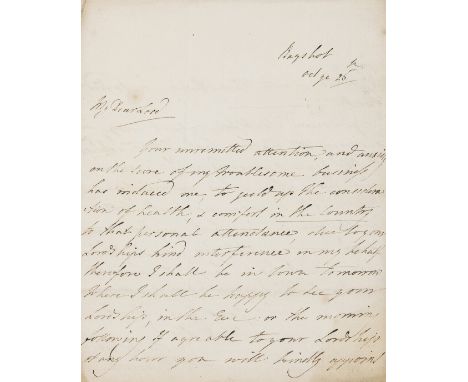 Bagshot
Oct ye 26th
My Dear Lord
Your unremitted attention, and anxiety
on the score of my troublesome business
has induced me, to yield up the consideration
of health, & comfort in the Country
to that personal attendance due to your
Lordships kind interference in my behalf
therefore I shall be in town tomorrow
Where I shall be happy to see your
Lordship, in the Eve or the morning
following if agreable to your Lordship
at any hour you will kindly appoint